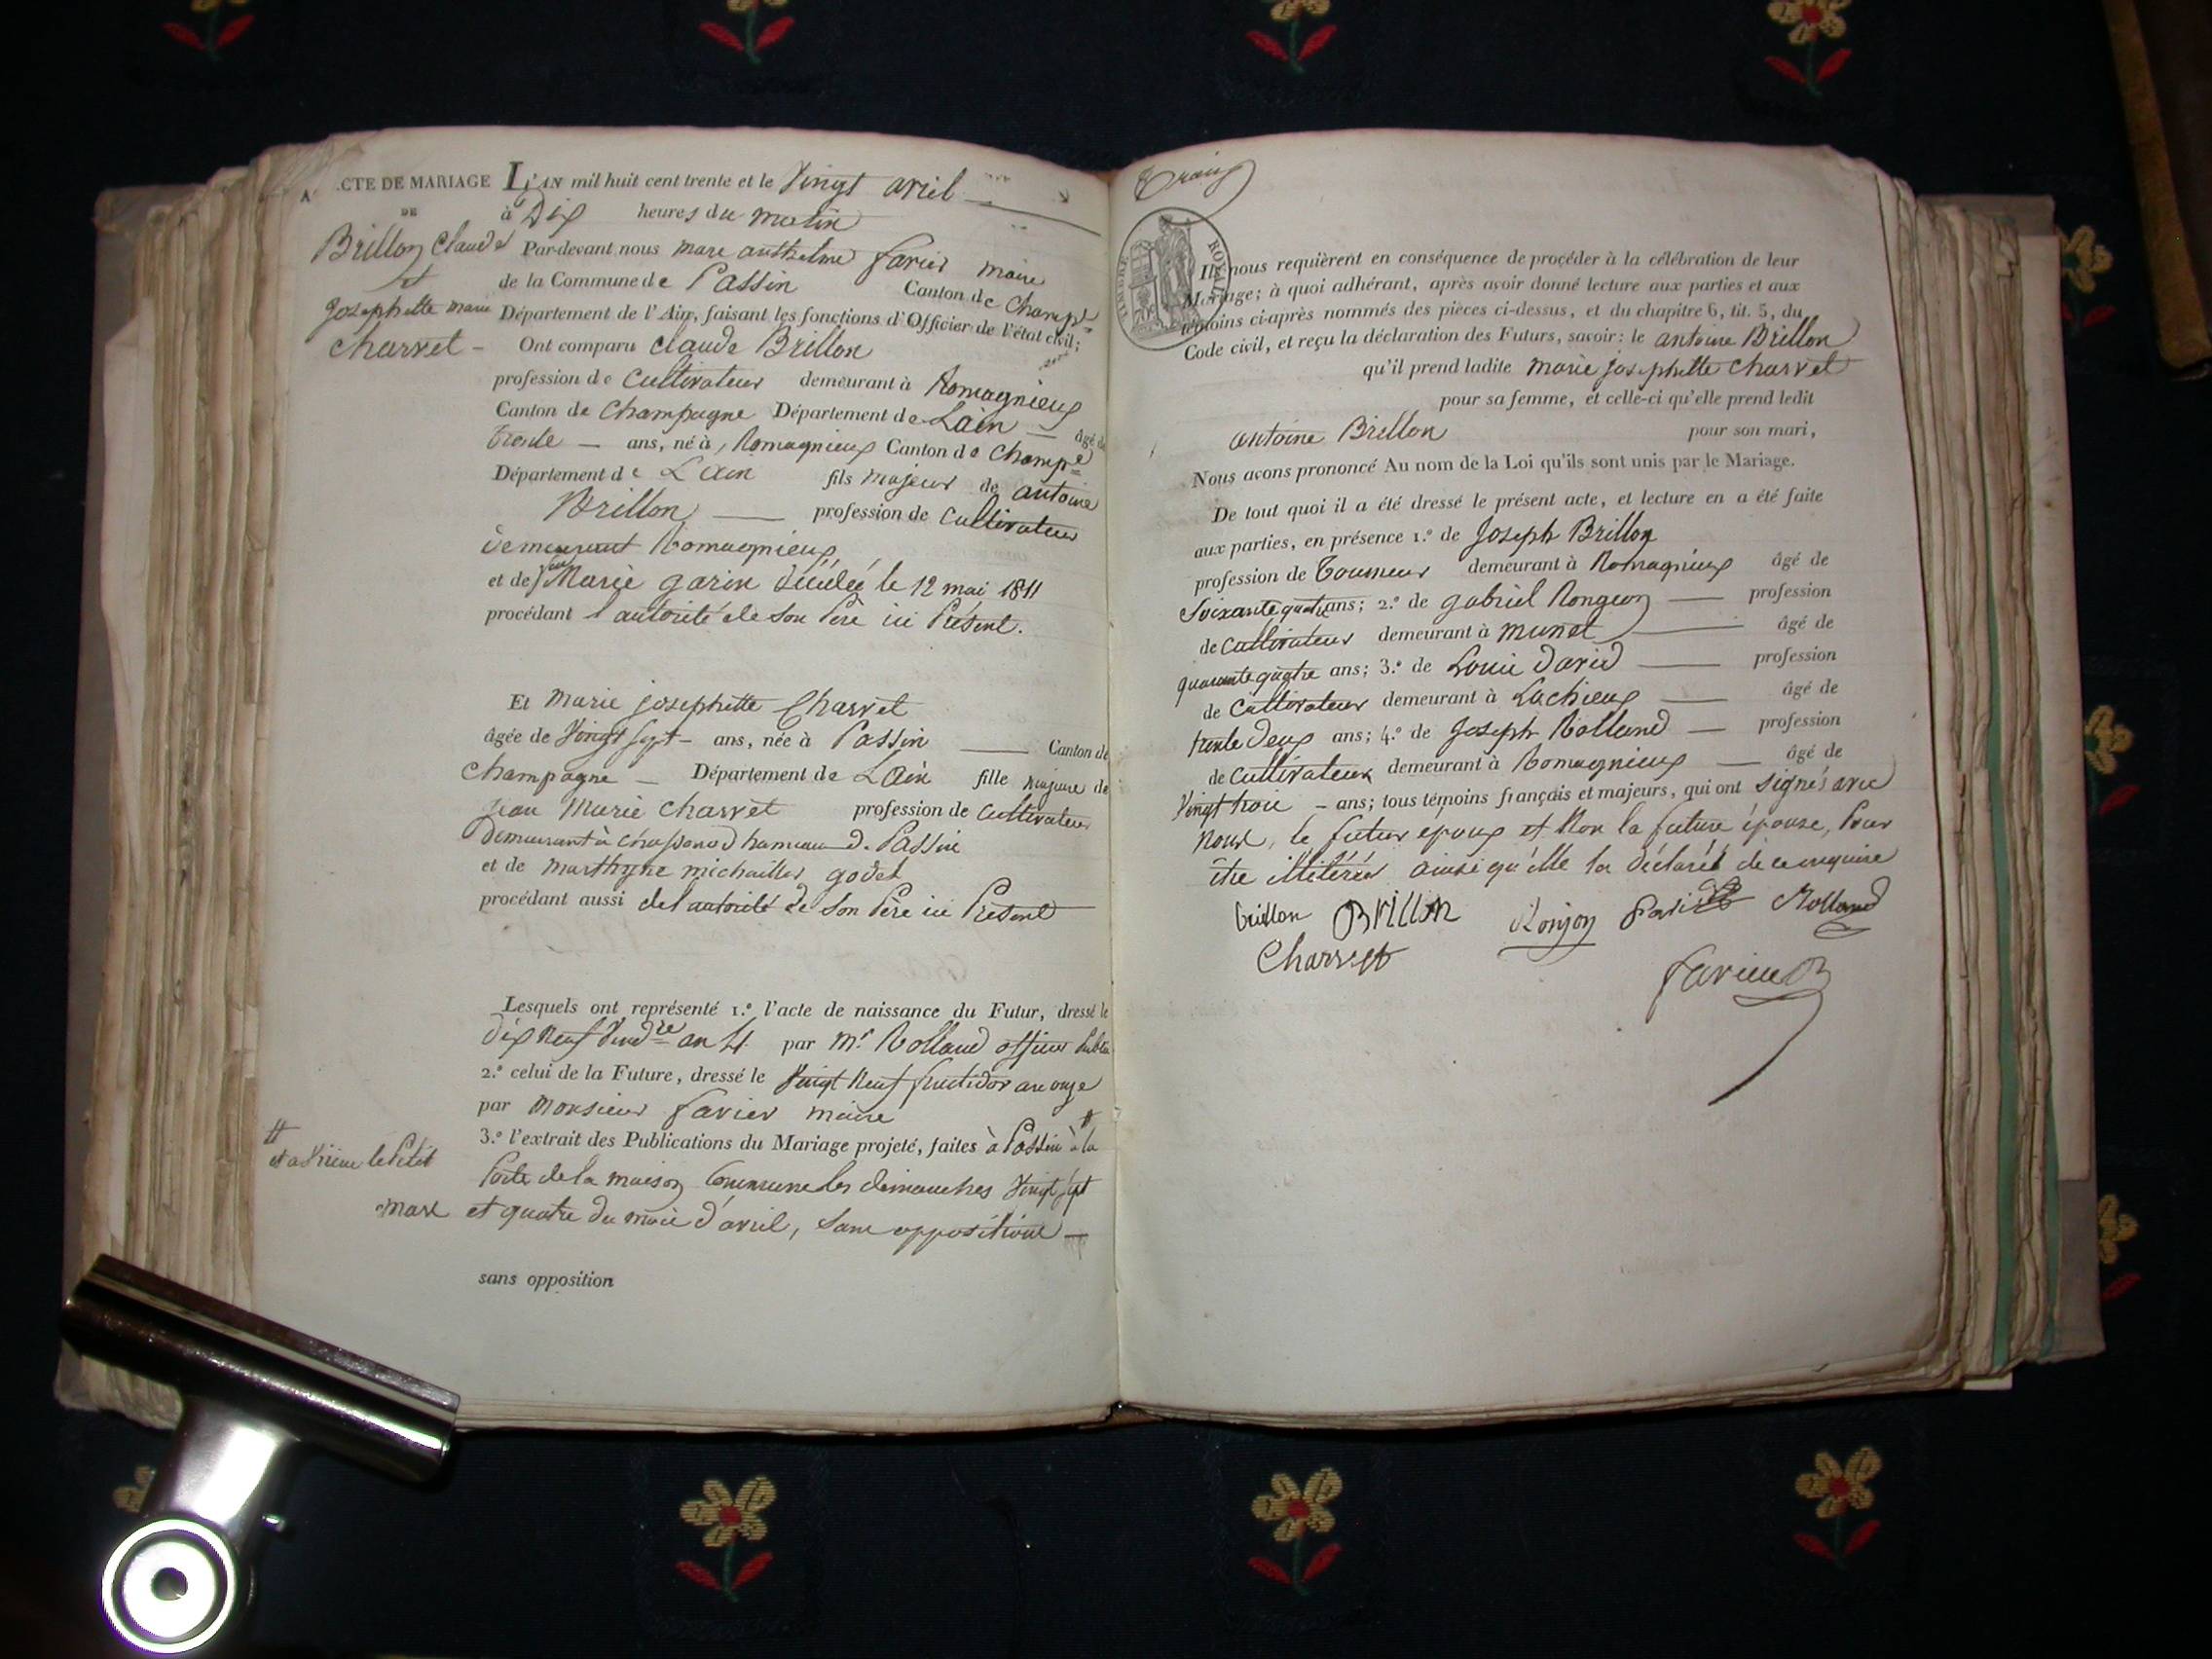 ACTE DE MARIAGE
DE
Brillon Claude
et
Josephette marie
Charvet -
L'AN mil huit cent trente et le Vingt avril
à Dix heures du matin
Par-devant nous marc anthelme favier maire
de la Commune de Passin Canton de Champe
Département de l'Ain, faisant les fonctions d'Officier de l'état civil;
Ont comparu Claude Brillon
profession de Cultivateur demeurant à Romagnieux
Canton de Champagne Département de Lain âgé de
trente ans, né à Romagnieux Canton de Champe
Département de Lain fils majeur de antoine
Brillon profession de Cultivateur
demeurant Romagnieux
et de feu Marie garin décédée le 12 mai 1811
procédant l autorité de son Père ici Présent.
Et Marie josephette Charvet
âgée de Vingt sept - ans, née à Passin Canton de
Champagne Département de Lain fille majeure de
jean Marie Charvet profession de Cultivateur
Demeurant à hameau de Passin
et de marthyne michaillet godet
procédant aussi del autorité de son Père ici Présent
Lesquels ont représenté 1.º l'acte de naissance du Futur, dressé le
dix neuf Vendre an 4 par Mr Rolland officier Public
2.º celui de la Future, dressé le Vingt Neuf fructidor an onze
par Monsieur favier maire
3.º l'extrait des Publications du Mariage projeté, faites à Passin # à la
# et a Virieu le Petit
Porte de la maison Commune les dimanches Vingt sept
mars et quatre du mois d'avril, sans oppositions
sans opposition
TIMBRE ROYAL
Ils nous requièrent en conséquence de procéder à la célébration de leur
Mariage; à quoi adhérant, après avoir donné lecture aux parties et aux
témoins ci-après nommés des pièces ci-dessus, et du chapitre 6, tit. 5, du
Code civil, et reçu la déclaration des Futurs, savoir: le antoine Brillon
qu'il prend ladite marie josephette Charvet
pour sa femme, et celle-ci qu'elle prend ledit
antoine Brillon pour son mari,
Nous avons prononcé Au nom de la Loi qu'ils sont unis par le Mariage.
De tout quoi il a été dressé le présent acte, et lecture en a été faite
aux parties, en présence 1.º de Joseph Brillon
profession de Tourneur demeurant à Romagnieux âgé de
Soixante quatre ans; 2.º de gabriel Rongeon profession
de Cultivateur demeurant à munet âgé de
quarante quatre ans; 3.º de Louis David profession
de Cultivateur demeurant à Luchieux âgé de
trente Deux ans; 4.º de Joseph Rolland profession
de Cultivateur demeurant à Romagnieux âgé de
Vingt trois - ans; tous témoins français et majeurs, qui ont signés avec
Nous, le futur epoux et Non la future épouse, Pour
être illitérée ainsi qu'elle la déclarée de ce enquise
brillon BRILLON Ronjon David Rolland
Charvet
favier